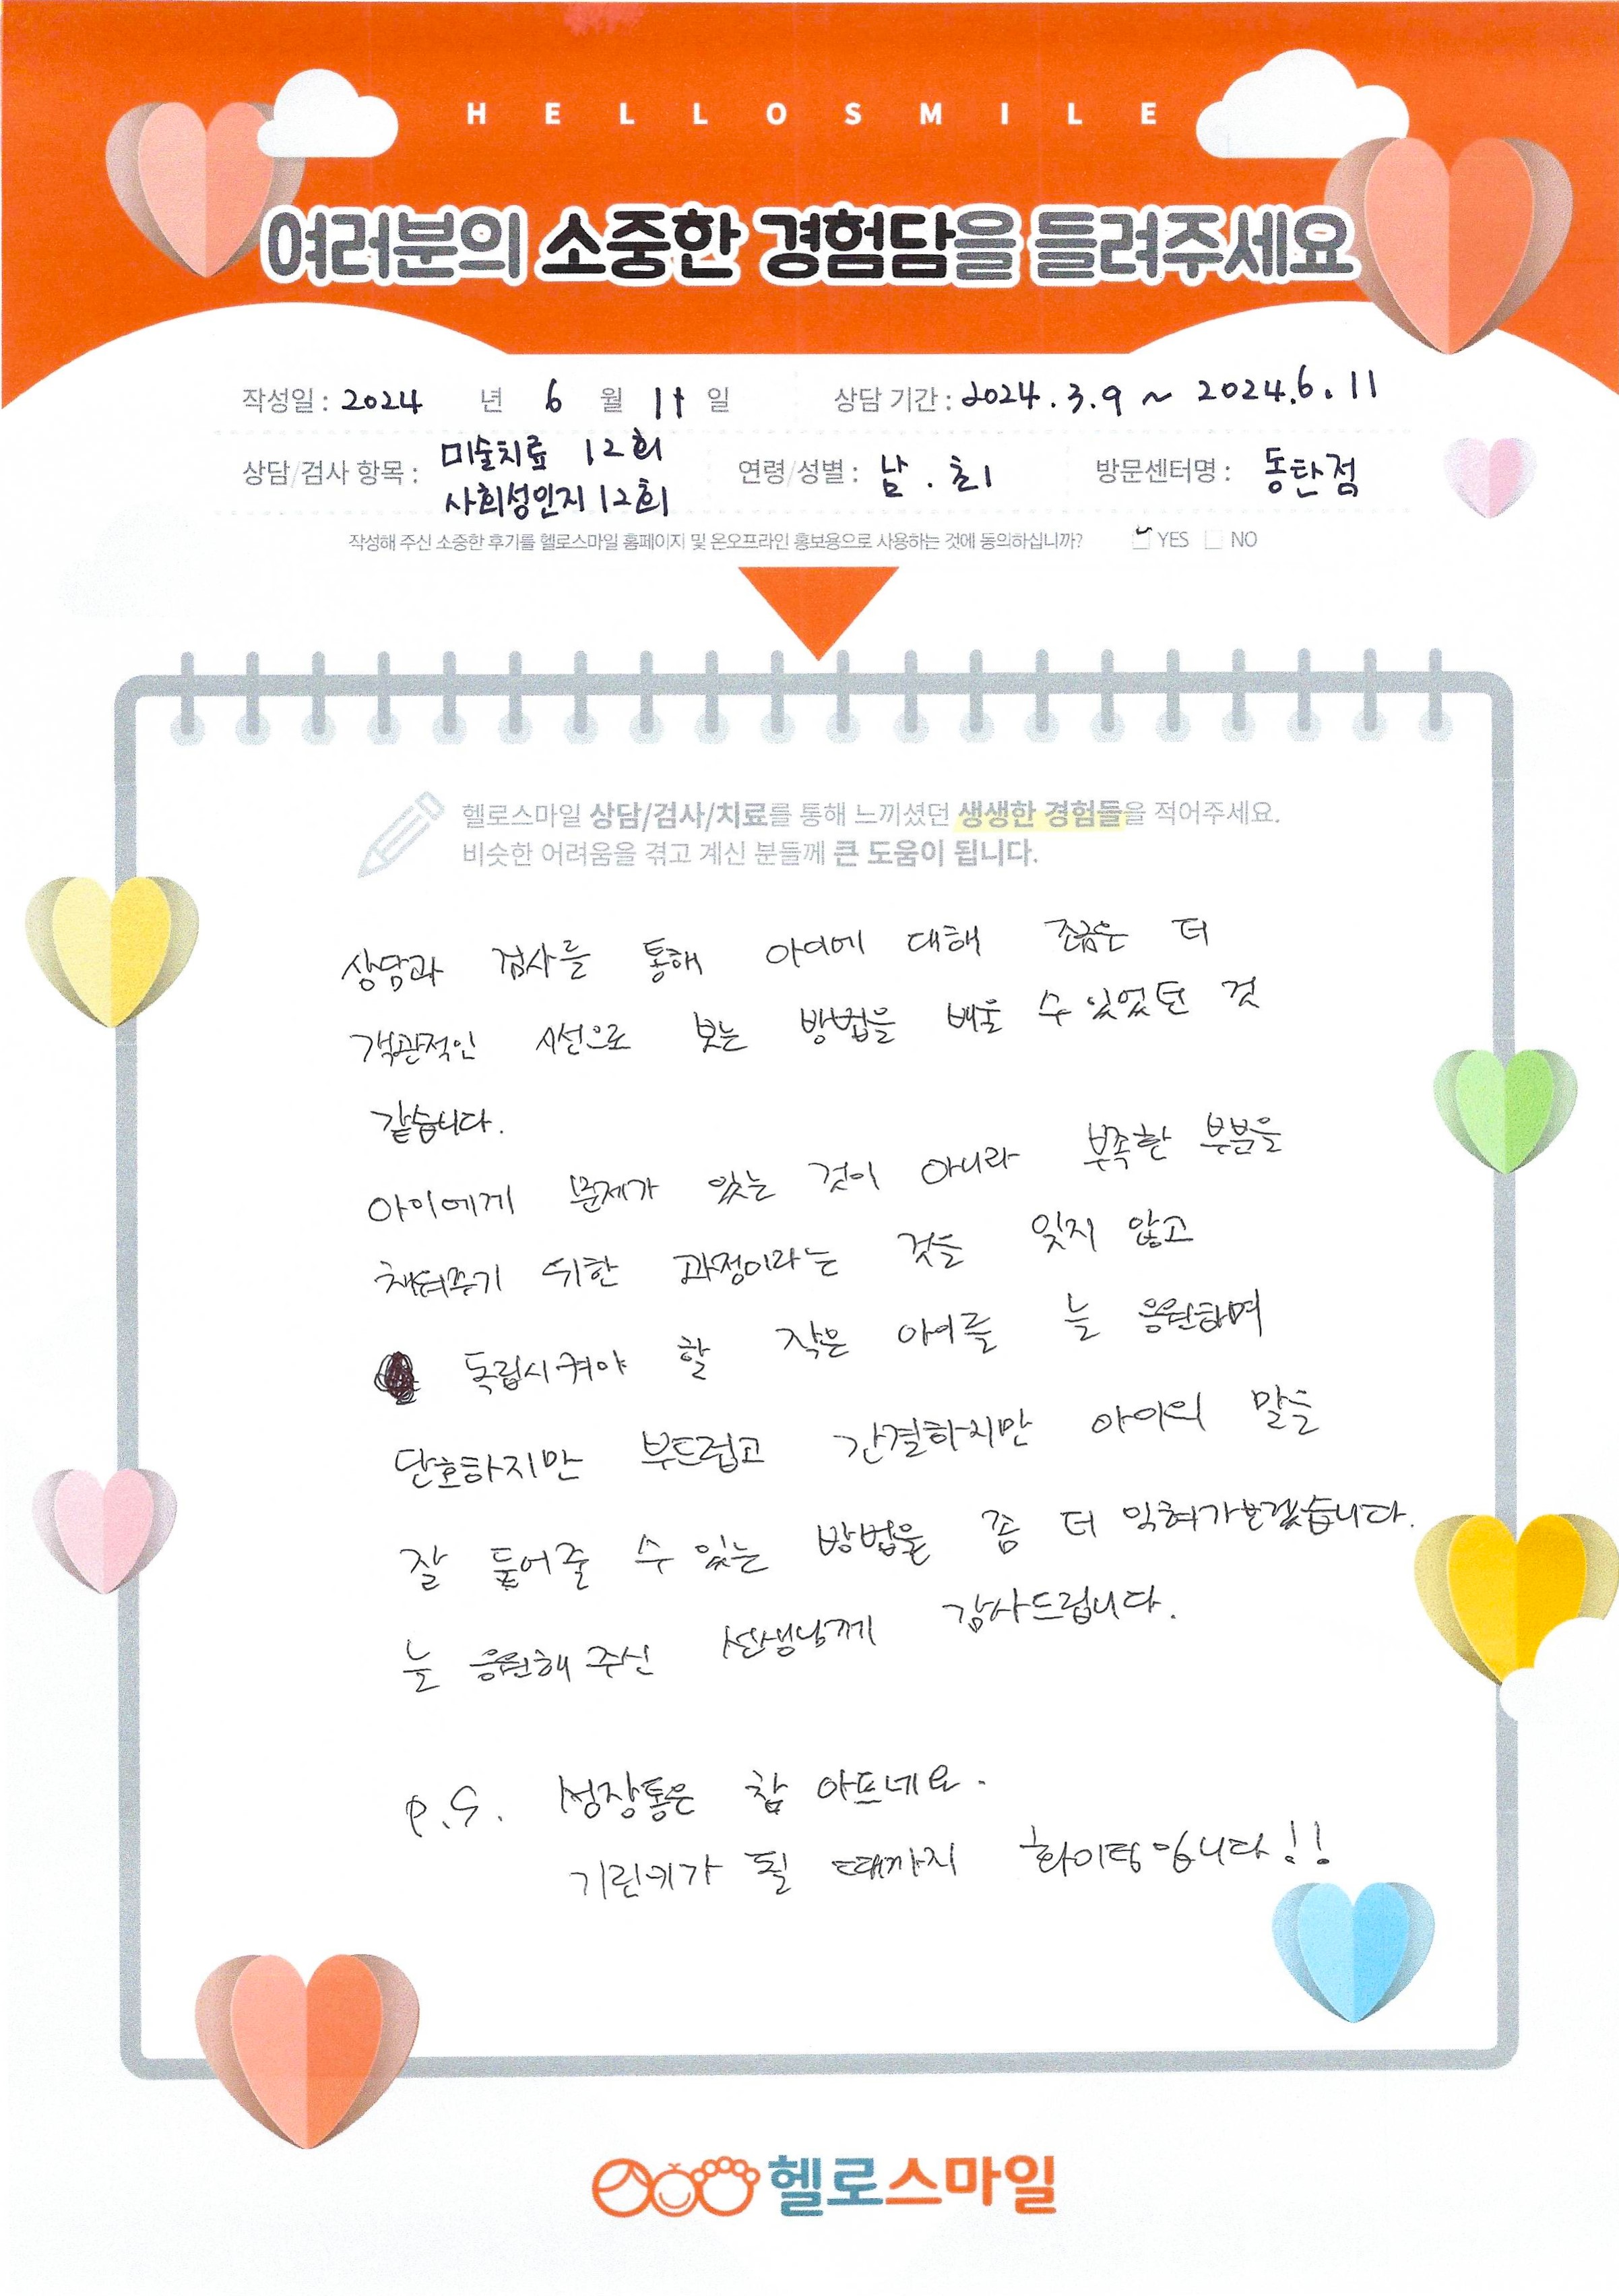 HELLOSMILE
여러분의 소중한 경험담을 들려주세요
작성일 : 2024 년 6 월 11 일 상담 기간 : 2024.3.9 ~ 2024.6.11
상담/검사 항목 : 미술치료 12회 연령/성별 : 남 . 초1 방문센터명 : 동탄점
사회성인지 12회
작성해 주신 소중한 후기를 헬로스마일 홈페이지 및 온오프라인 홍보용으로 사용하는 것에 동의하십니까? YES NO
헬로스마일 상담/검사/치료를 통해 느끼셨던 생생한 경험들을 적어주세요.
비슷한 어려움을 겪고 계신 분들께 큰 도움이 됩니다.
상담과 검사를 통해 아이에 대해 조금은 더
객관적인 시선으로 보는 방법을 배울 수 있었던 것
같습니다.
아이에게 문제가 있는 것이 아니라 부족한 부분을
채워주기 위한 과정이라는 것을 잊지 않고
독립시켜야 할 작은 아이를 늘 응원하며
단호하지만 부드럽고 간결하지만 아이의 말을
잘 들어줄 수 있는 방법을 좀 더 익혀가보겠습니다.
늘 응원해 주신 선생님께 감사드립니다.
P.S. 성장통은 참 아프네요.
기린키가 될 때까지 화이팅입니다!!
헬로스마일